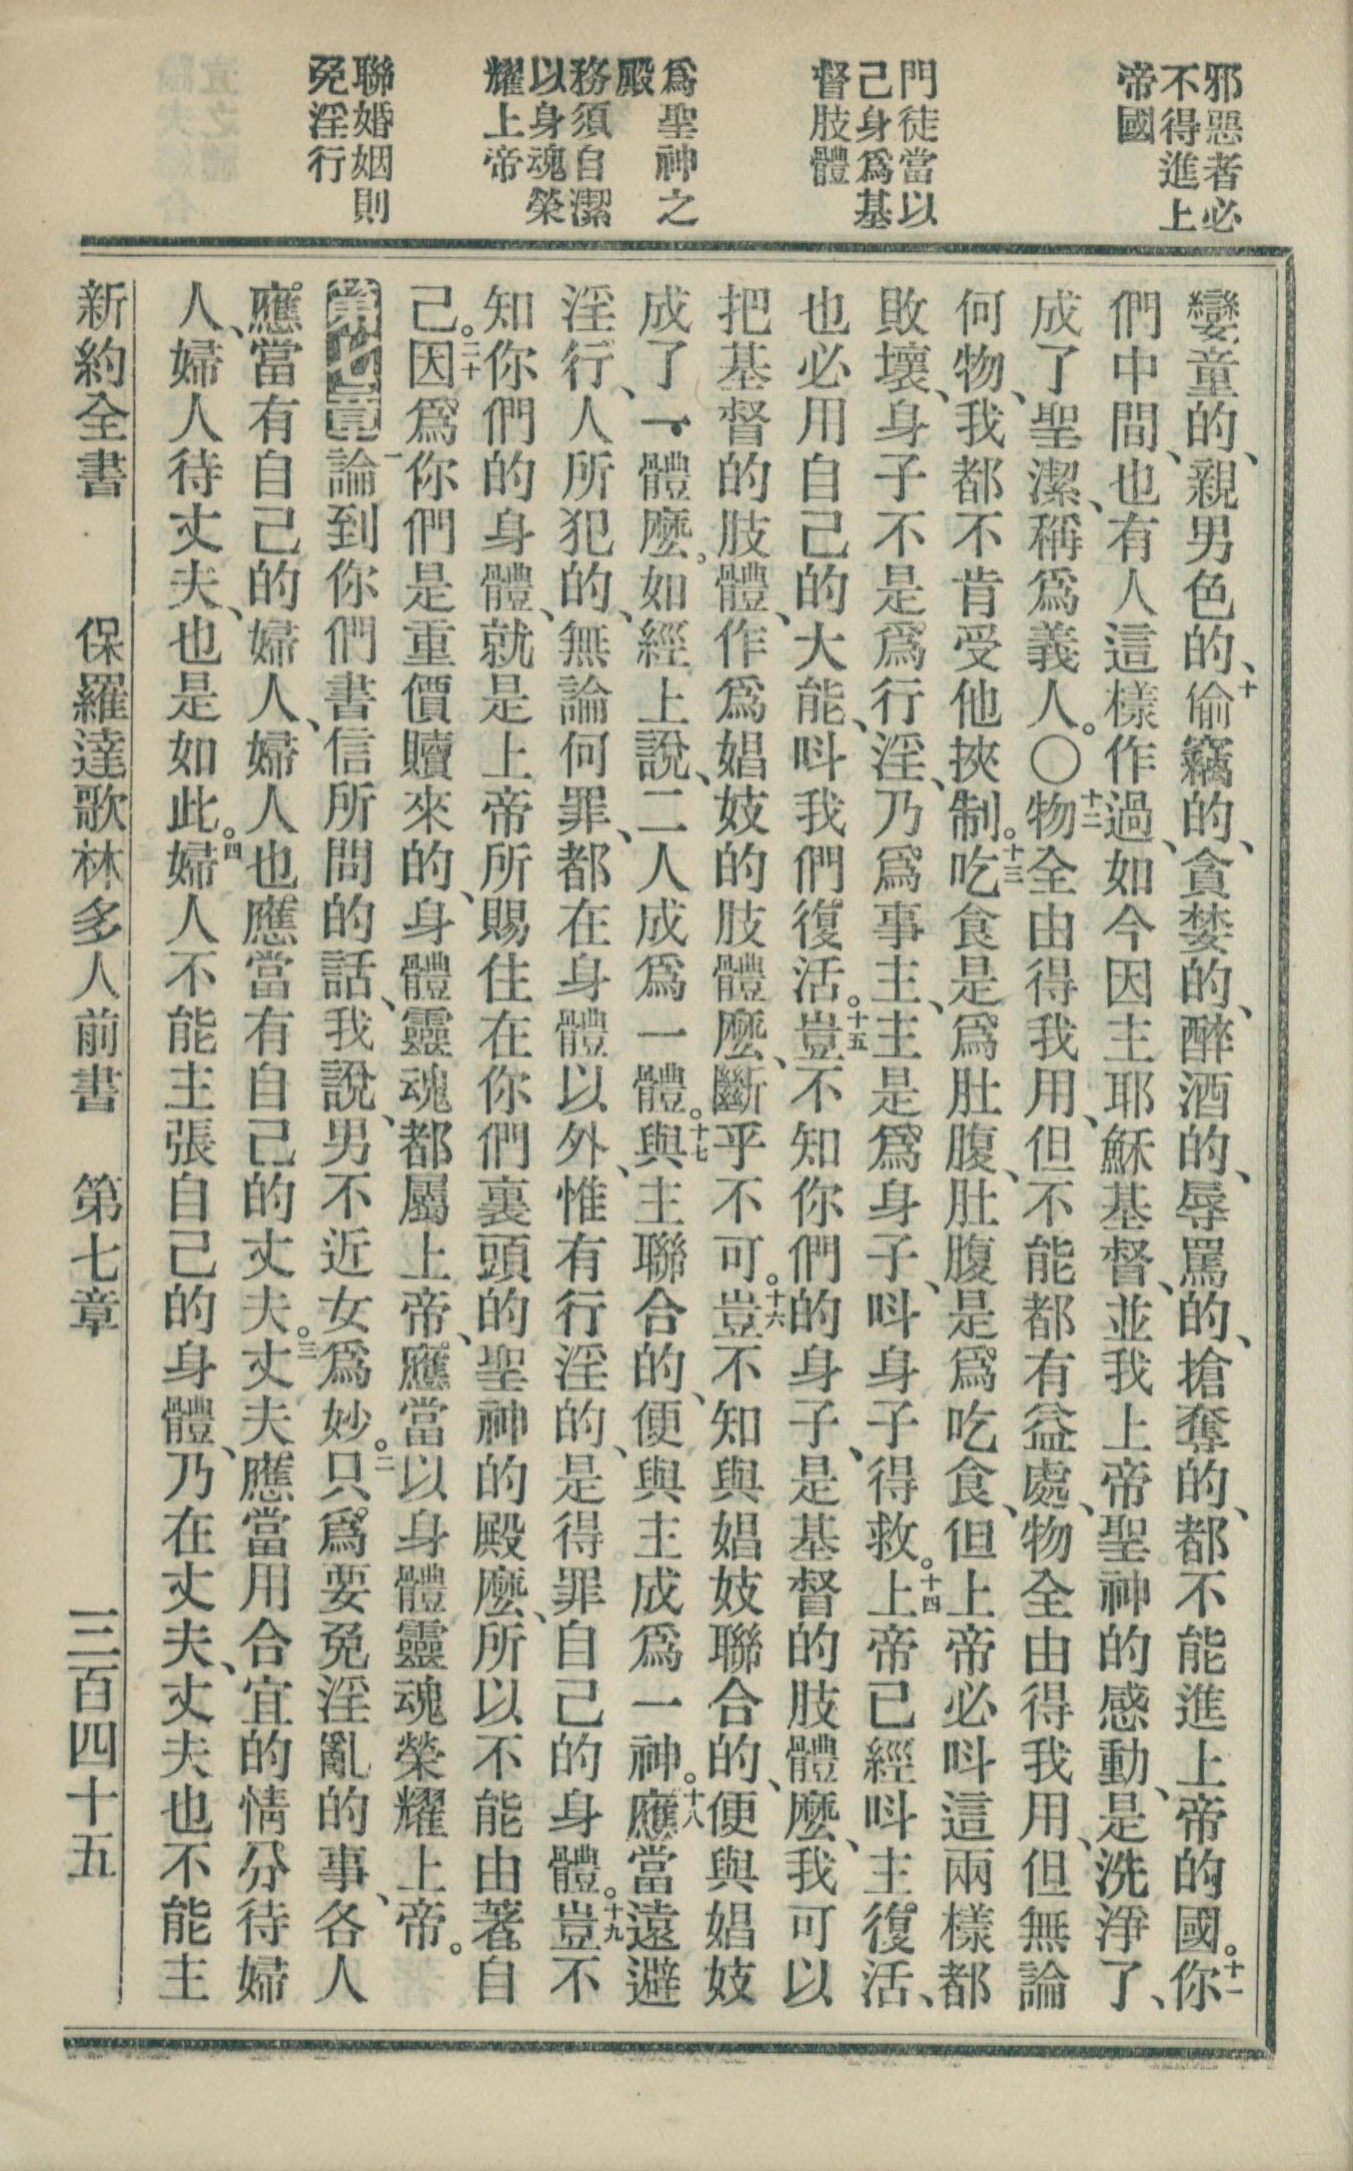 邪惡者必
不得進上
帝國
門徒當以
己身爲基
督肢體
爲聖神之
殿
務須自潔
以身魂榮
耀上帝
聯婚姻則
免淫行
孌童的、親男色的、十偷竊的、貪婪的、醉酒的、辱罵的、搶奪的、都不能進上帝的國。十一你
們中間、也有人這樣作過、如今因主耶穌基督、並我上帝聖神的感動、是洗淨了、
成了聖潔、稱爲義人。〇十二物全由得我用、但不能都有益處、物全由得我用、但無論
何物、我都不肯受他挾制。十三吃食是爲肚腹、肚腹是爲吃食、但上帝必呌這兩樣都
敗壞、身子不是爲行淫、乃爲事主、主是爲身子、呌身子得救。十四上帝已經呌主復活、
也必用自己的大能、呌我們復活。十五豈不知你們的身子、是基督的肢體麽、我可以
把基督的肢體、作爲娼妓的肢體麽、斷乎不可。十六豈不知與娼妓聯合的、便與娼妓
成了一體麽。如經上說、二人成爲一體。十七與主聯合的、便與主成爲一神。十八應當遠避
淫行、人所犯的、無論何罪、都在身體以外、惟有行淫的、是得罪自己的身體。十九豈不
知你們的身體、就是上帝所賜住在你們裏頭的聖神的殿麽、所以不能由著自
己。二十因爲你們是重價贖來的、身體靈魂都屬上帝、應當以身體靈魂榮耀上帝。
第七章一論到你們書信所問的話、我說、男不近女爲妙。二只爲要免淫亂的事、各人
應當有自己的婦人、婦人也應當有自己的丈夫。三丈夫應當用合宜的情分待婦
人、婦人待丈夫、也是如此。四婦人不能主張自己的身體、乃在丈夫、丈夫也不能主
新約全書 保羅達歌林多人前書 第七章 三百四十五